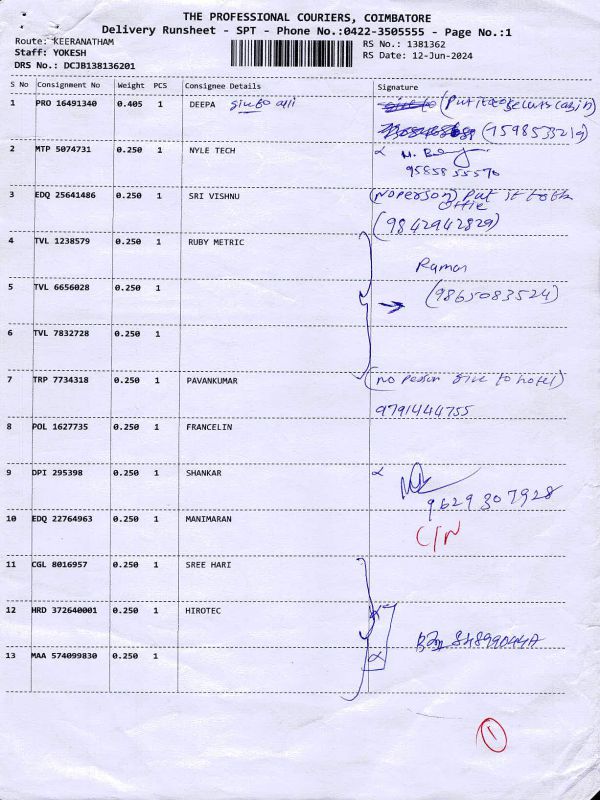 THE PROFESSIONAL COURIERS, COIMBATORE
Delivery Runsheet - SPT - Phone No.:0422-3505555 - Page No.:1
Route: KEERANATHAM
Staff: YOKESH
DRS No.: DCJB138136201
RS No.: 1381362
RS Date: 12-Jun-2024
S No Consignment No Weight PCS Consignee Details Signature
1 PRO 16491340 0.405 1 DEEPA
(Put it
(7598533219)
2 MTP 5074731 0.250 1 NYLE TECH
9585855570
3 EDQ 25641486 0.250 1 SRI VISHNU (No person) Put it to
(9842942829)
4 TVL 1238579 0.250 1 RUBY METRIC
Raman
5 TVL 6656028 0.250 1 (9865083524)
6 TVL 7832728 0.250 1
7 TRP 7734318 0.250 1 PAVANKUMAR (no person give to hotel)
9791444755
8 POL 1627735 0.250 1 FRANCELIN
9 DPI 295398 0.250 1 SHANKAR
9629307928
10 EDQ 22764963 0.250 1 MANIMARAN
C/N
11 CGL 8016957 0.250 1 SREE HARI
12 HRD 372640001 0.250 1 HIROTEC
13 MAA 574099830 0.250 1
1